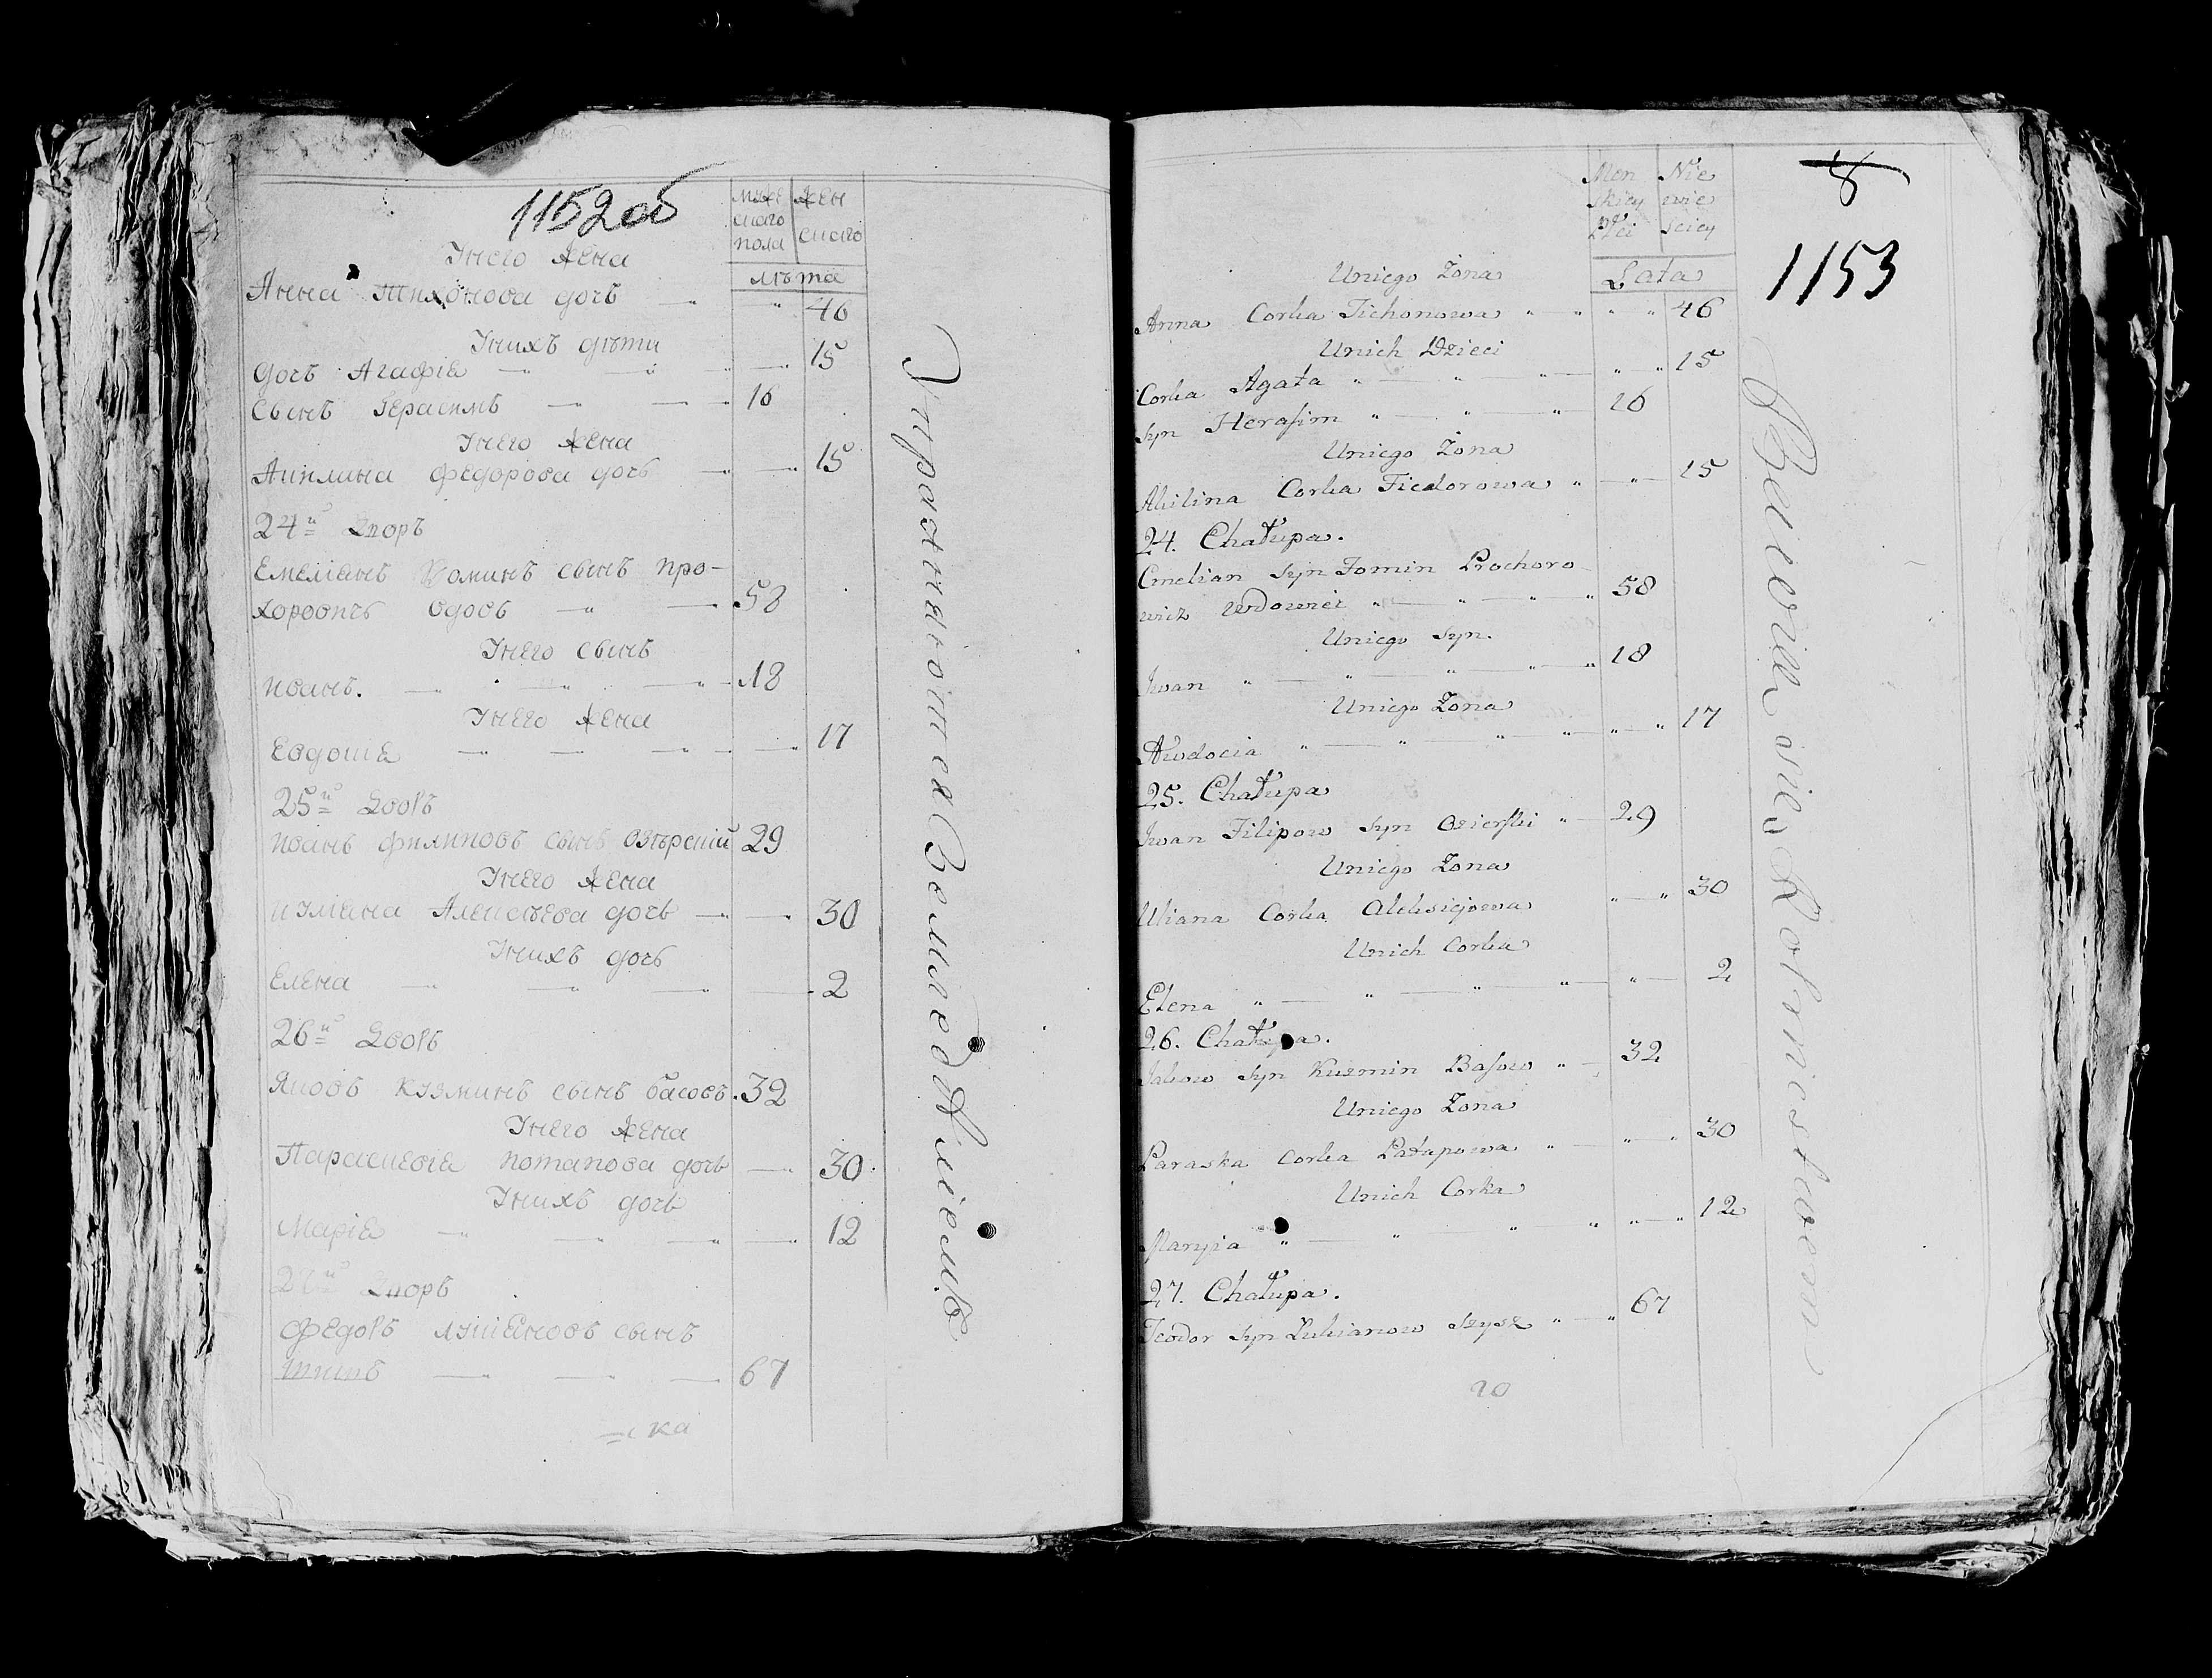 1152об
Муже
скаго
пола
Жен
скаго
лѣта
Унего Жена
Анна Тихонова дочь 46
Унихъ дѣти
дочь Агафія 15
Сынъ Герасимъ 16
Унего Жена
Акилина Федорова дочь 15
24й Дворъ
Емеліянъ Фоминъ сынъ Про-
хоровичъ вдовъ 58
Унего Сынъ
Иванъ. 18
Унего Жена
Евдокія 17
25й Дворъ
Иванъ Филиповъ Сынъ Озѣрскій 29
Унего Жена
Иулiяна Алексѣева дочь 30
Унихъ дочь
Елена 2
26й Дворъ
Яковъ Кузминъ Сынъ Басовъ. 32
Унего Жена
Параскевія Потапова дочь 30.
Унихъ дочь
Марія 12
27й Дворъ
Федоръ Лукіяновъ Сынъ
67
Упражняютея Земледѣліемъ
8
1153
Men
skiey
Płci
Nie
wie
sciey
Lata
Uniego Zona
Anna Corka Tichonowa 46
Unich Dzieci
Corka Agata 15
Syn Herasim 16
Uniego Zona
Akilina Corka Fiedorowa 15
24. Chałupa.
Emelian Syn Fomin Prochoro-
wicz Wdowiec 58
Uniego Syn.
Iwan 18
Uniego Zona
Awdocia 17
25. Chałupa
Iwan Filipow Syn Ozierski 29
Uniego Zona
Uliana Corka Aleksiejowa 30
Unich Corka
Elena 2
26. Chałupa.
Jakow Syn Kuzmin Basow 32
Uniego Zona
Paraska Corka Patapowa 30
Unich Corka
Maryia 12
27. Chałupa.
Teodor Syn Lukianow Szysz 67
20